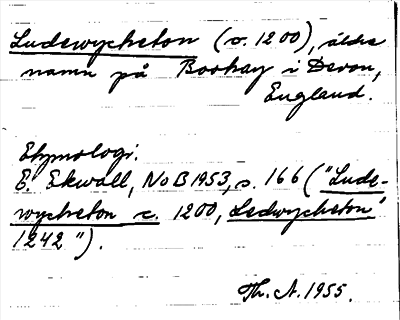 Ludewycheton (c. 1200), äldre
namn på Boohay i Devon,
England.
Etymologi.
E. Ekwall, NoB 1953, s. 166 ("Lude-
wycheton c. 1200, Ledwycheton
1242").
Th. A. 1955.